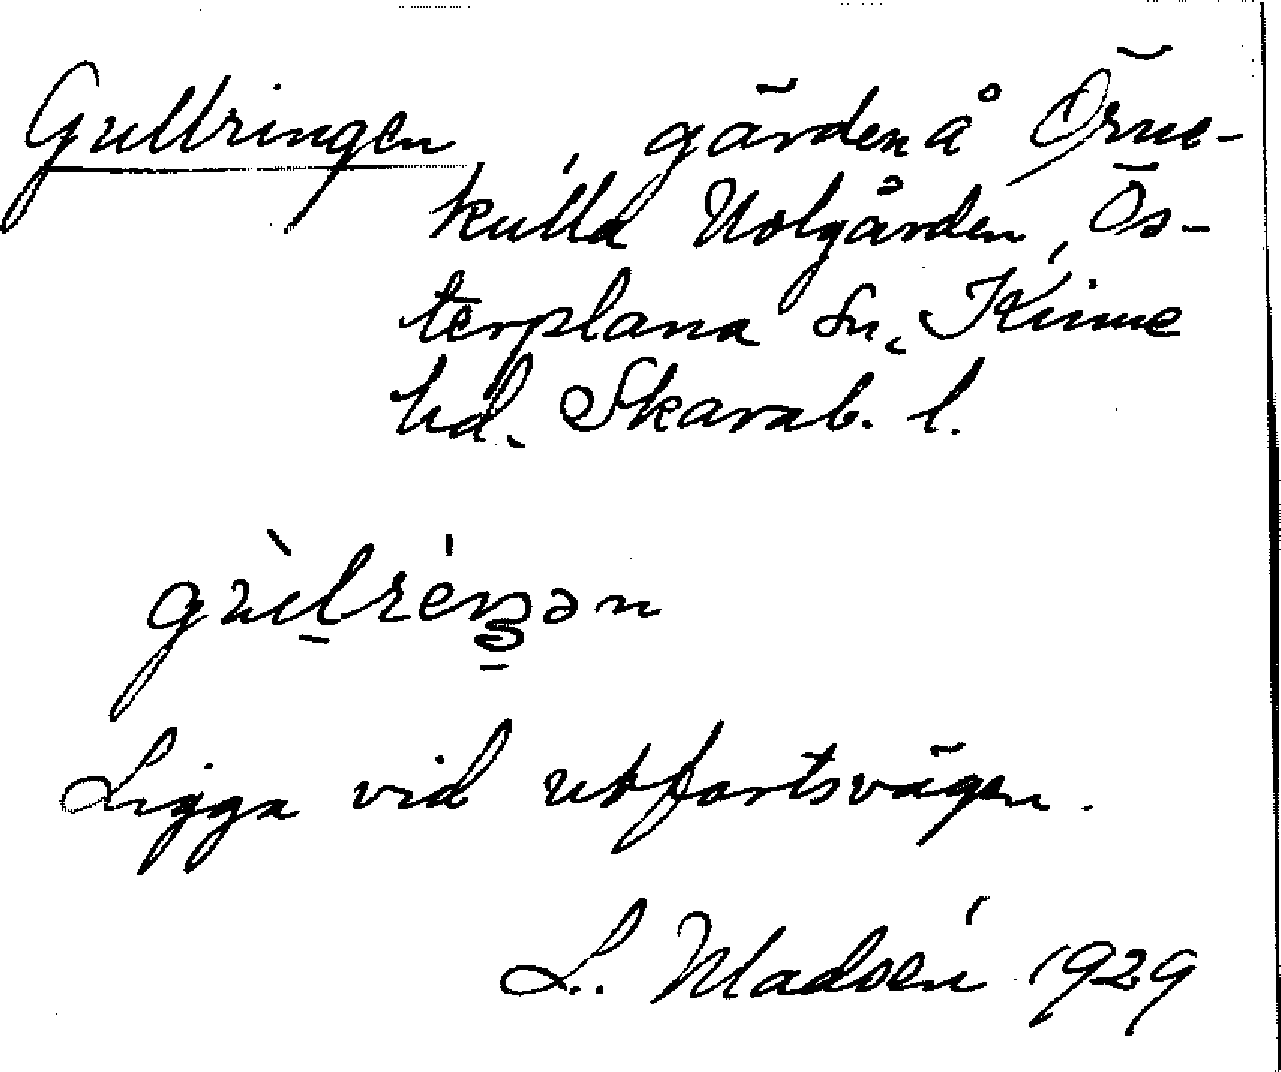 Gullringen, gärden å Örne-
kulla Nolgården, Ös-
terplana sn, Kinne
hd. Skarab. l.
Ligga vid utfartsvägen.
L. Madsén 1929